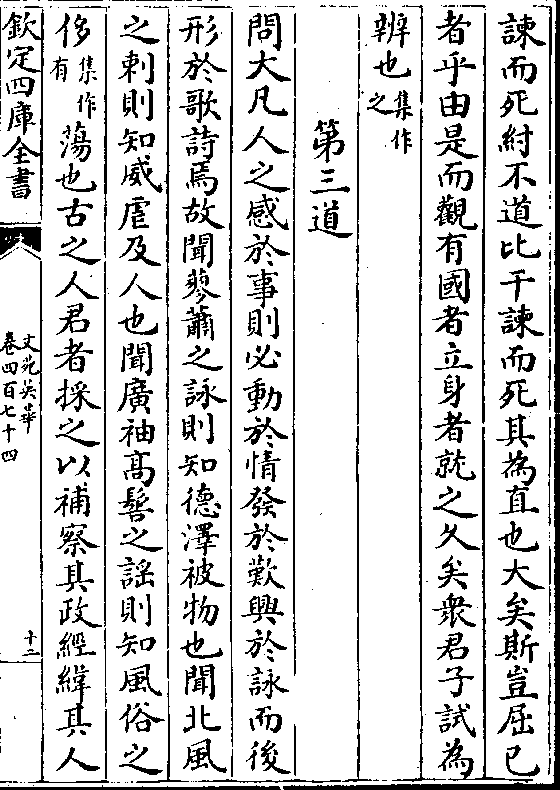 諫而死紂不道比干諫而死其為直也大矣斯豈屈已
者乎由是而觀有國者立身者就之久矣衆君子試為
辨也集作之
第三道
問大凡人之感於事則必動於情發於歎興於詠而後
形於歌詩焉故聞蓼蕭之詠則知德澤被物也聞北風
之刺則知威虐及人也聞廣袖髙髻之謡則知風俗之
侈集作有蕩也古之人君者採之以補察其政經緯其人
欽定四庫全書
文苑英華
卷四百七十四
十二